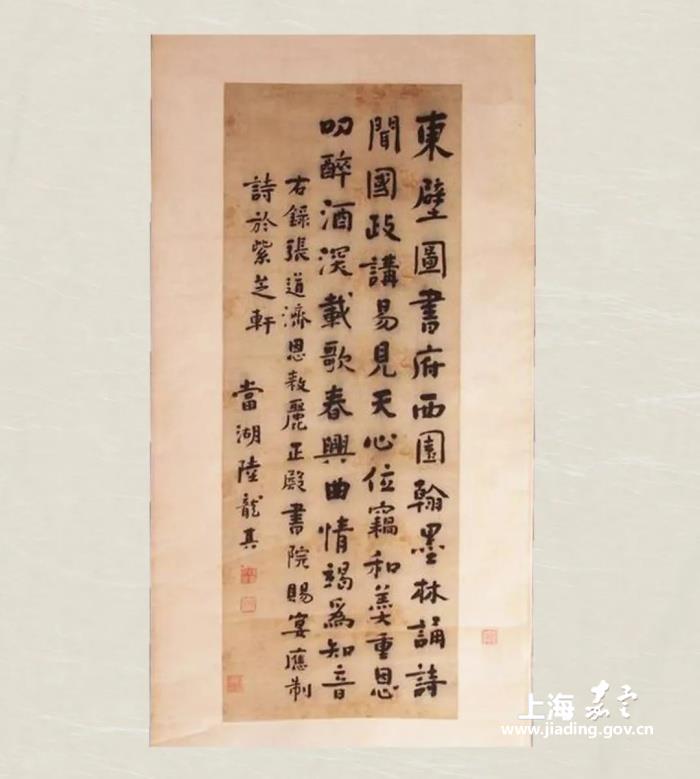 東壁圖書府西園翰墨林誦詩
聞國政講易見天心位竊和羹重恩
叨醉酒深載歌春興曲情竭爲知音
右錄張道濟恩敕麗正殿書院賜宴應制
詩於紫芝軒
當湖陸龍其
上海嘉定
www.jiading.gov.cn